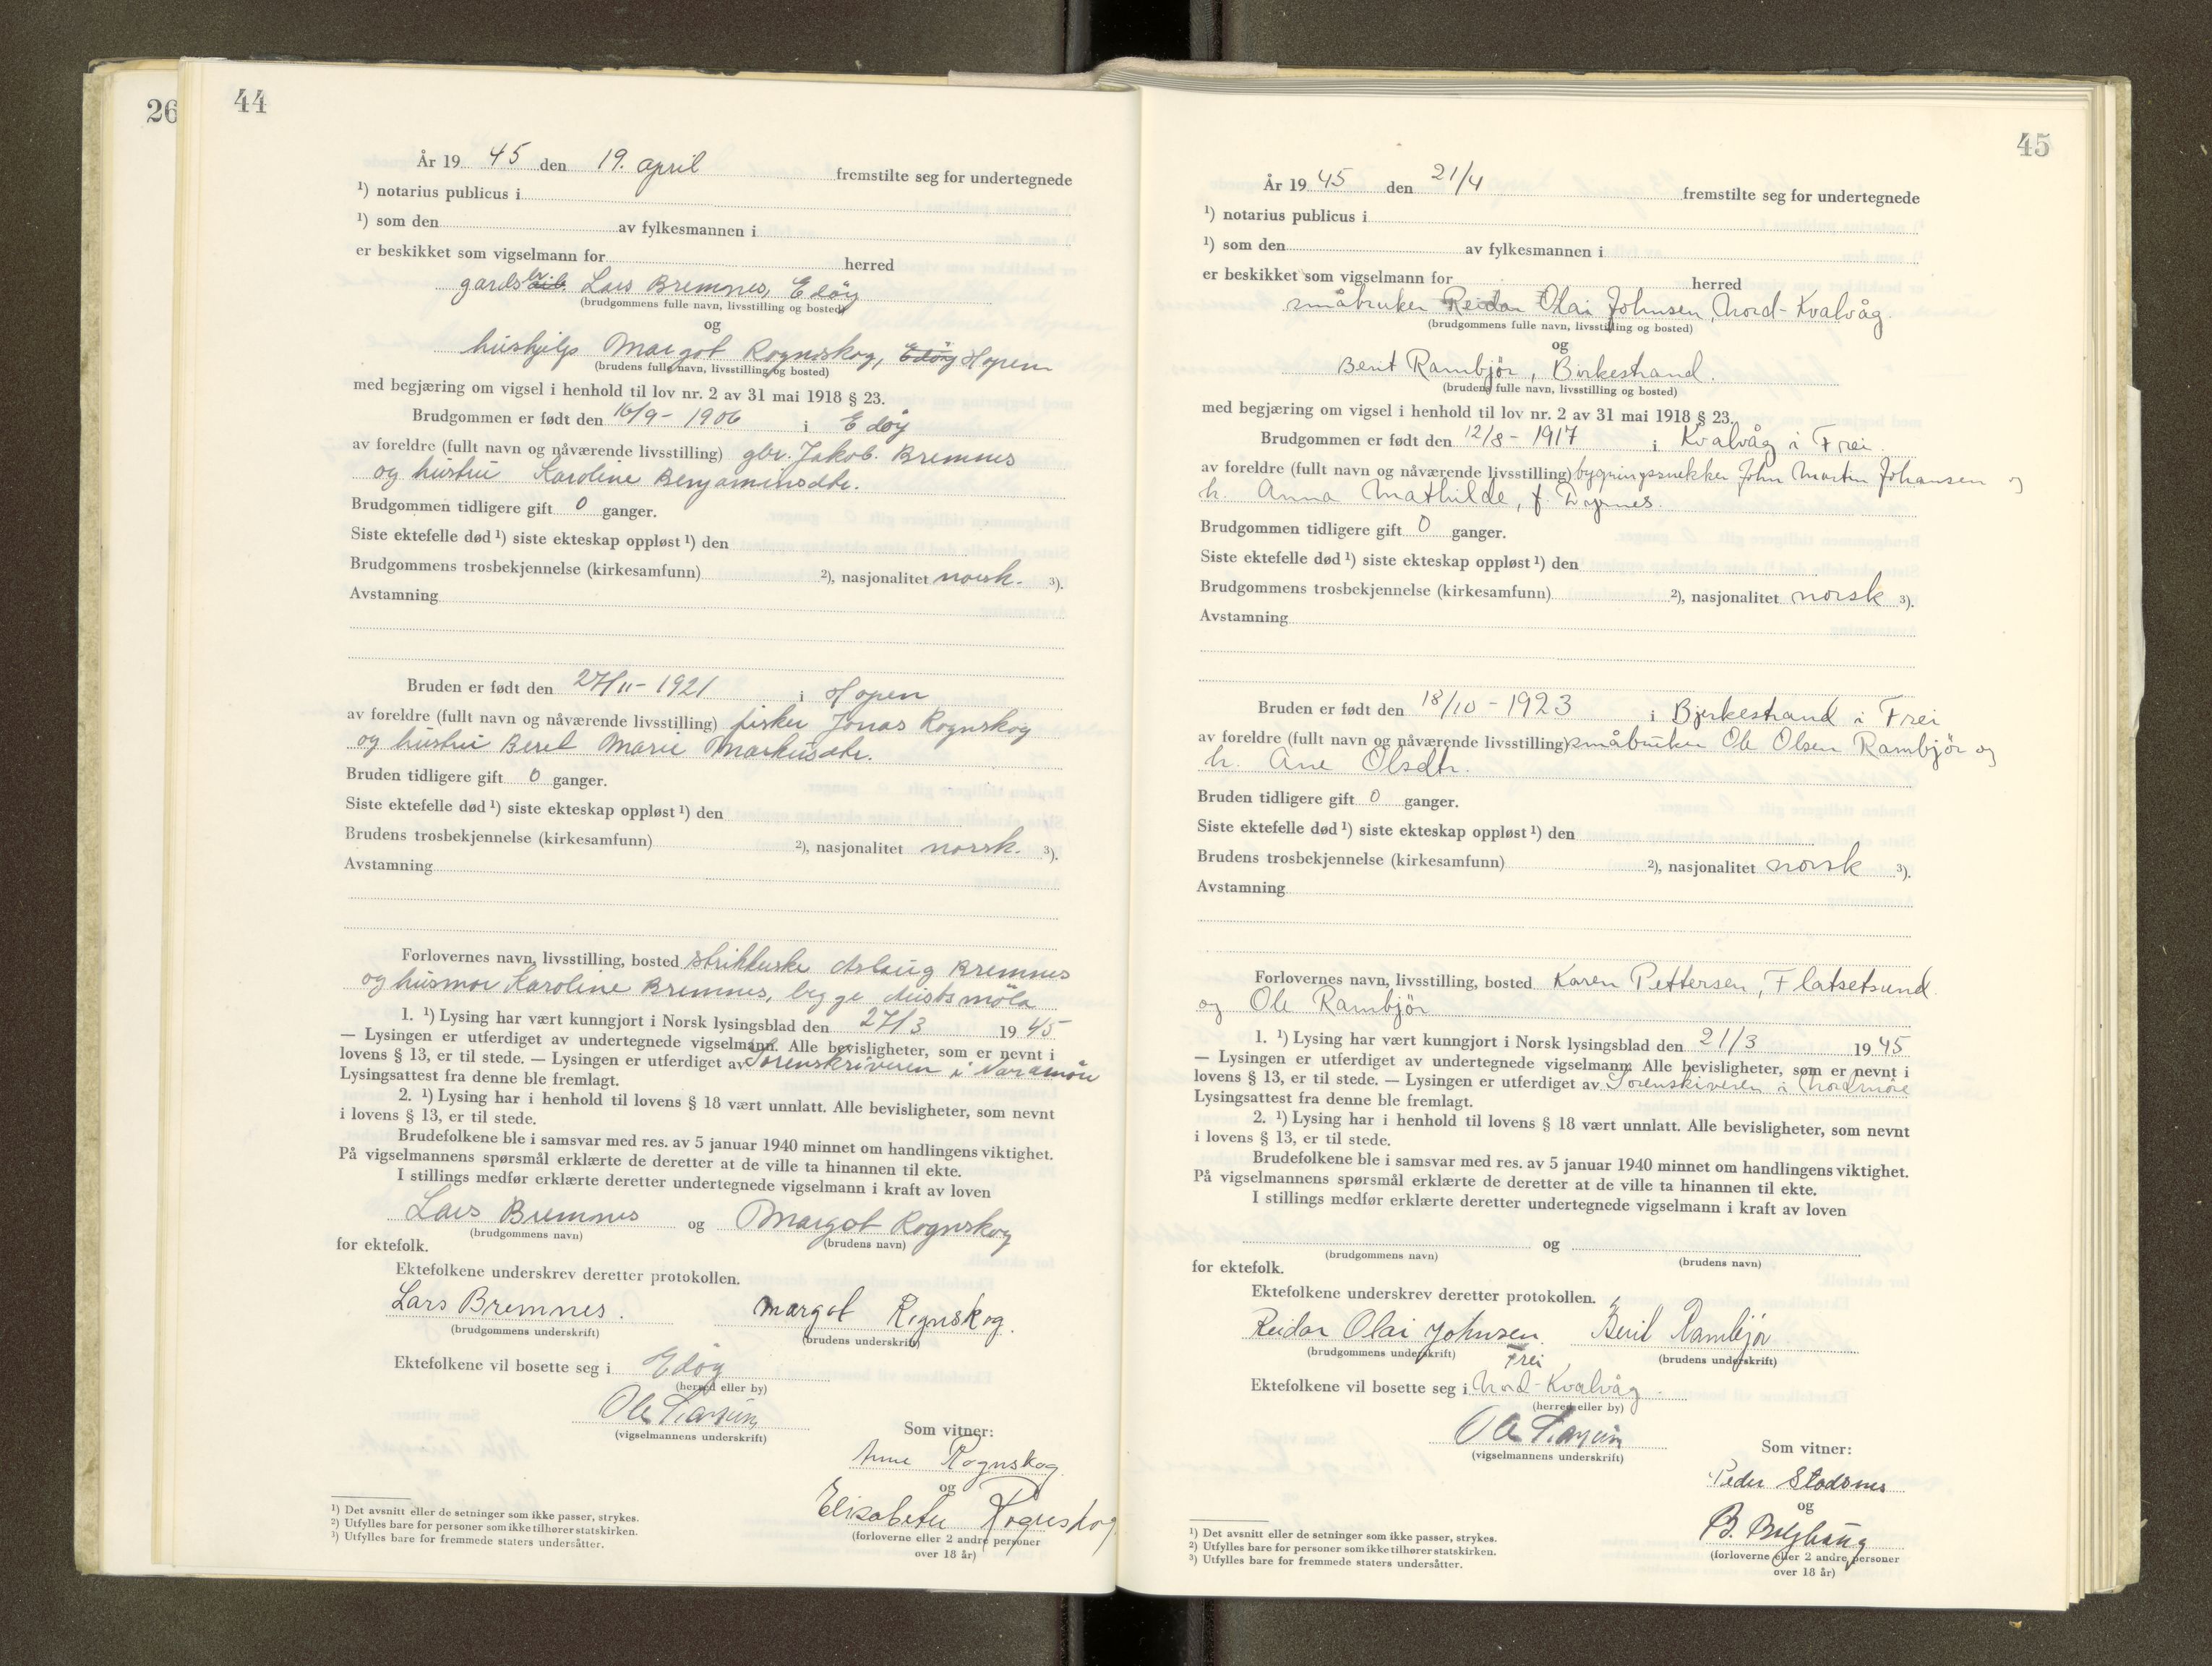 26
44
År 19 45 den 19. april fremstilte seg for undertegnede
¹) notarius publicus i
¹) som den av fylkesmannen i
er beskikket som vigselmann for herred
gards Lars Bremnes, Edöy
(brudgommens fulle navn, livsstilling og bosted)
og
hushjelp Margot Rognskog, Edöy Hopen
(brudens fulle navn, livsstilling og bosted)
med begjæring om vigsel i henhold til lov nr. 2 av 31 mai 1918 § 23.
Brudgommen er født den 16/9 - 1906 i Edöy
av foreldre (fullt navn og nåværende livsstilling) gbr. Jakob Bremnes
og hustru Karoline Benjaminsdtr.
Brudgommen tidligere gift 0 ganger.
Siste ektefelle død ¹) siste ekteskap oppløst ¹) den
Brudgommens trosbekjennelse (kirkesamfunn) ²), nasjonalitet norsk. ³).
Avstamning
Bruden er født den 27/11 - 1921 i Hopen
av foreldre (fullt navn og nåværende livsstilling) fisker Jonas Rognskog
og hustru Beret Marie Markusdtr.
Bruden tidligere gift 0 ganger.
Siste ektefelle død ¹) siste ekteskap oppløst ¹) den
Brudens trosbekjennelse (kirkesamfunn) ²), nasjonalitet norsk. ³).
Avstamning
Forlovernes navn, livsstilling, bosted strikkerske Aslaug Bremnes
og husmor Karoline Bremnes, begge
1. ¹) Lysing har vært kunngjort i Norsk lysingsblad den 27/3 19 45
— Lysingen er utferdiget av undertegnede vigselmann. Alle bevisligheter, som er nevnt i
lovens § 13, er til stede. — Lysingen er utferdiget av Sorenskriveren i Nordmöre
Lysingsattest fra denne ble fremlagt.
2. ¹) Lysing har i henhold til lovens § 18 vært unnlatt. Alle bevisligheter, som nevnt
i lovens § 13, er til stede.
Brudefolkene ble i samsvar med res. av 5 januar 1940 minnet om handlingens viktighet.
På vigselmannens spørsmål erklærte de deretter at de ville ta hinannen til ekte.
I stillings medfør erklærte deretter undertegnede vigselmann i kraft av loven
Lars Bremnes og Margot Rognskog
(brudgommens navn) (brudens navn)
for ektefolk.
Ektefolkene underskrev deretter protokollen.
Lars Bremnes. Margot Rognskog.
(brudgommens underskrift) (brudens underskrift)
Ektefolkene vil bosette seg i Edöy
(herred eller by)
Ole Larsen
(vigselmannens underskrift)
Som vitner:
Anne Rognskog
og
Elisabeth Rognskog
(forloverne eller 2 andre personer
over 18 år)
¹) Det avsnitt eller de setninger som ikke passer, strykes.
²) Utfylles bare for personer som ikke tilhører statskirken.
³) Utfylles bare for fremmede staters undersåtter.
45
År 19 45 den 21/4 fremstilte seg for undertegnede
¹) notarius publicus i
¹) som den av fylkesmannen i
er beskikket som vigselmann for herred
småbruker Reidar Olai Johnsen, Nord-Kvalvåg.
(brudgommens fulle navn, livsstilling og bosted)
og
Berit Rambjör, Birkestrand.
(brudens fulle navn, livsstilling og bosted)
med begjæring om vigsel i henhold til lov nr. 2 av 31 mai 1918 § 23.
Brudgommen er født den 12/8 - 1917 i Kvalvåg i Frei.
av foreldre (fullt navn og nåværende livsstilling) bygningssnekker John Martin Johansen og
h. Anna Mathilde, f.
Brudgommen tidligere gift 0 ganger.
Siste ektefelle død ¹) siste ekteskap oppløst ¹) den
Brudgommens trosbekjennelse (kirkesamfunn) ²), nasjonalitet norsk ³).
Avstamning
Bruden er født den 18/10 - 1923 i Bjerkestrand i Frei
av foreldre (fullt navn og nåværende livsstilling) småbruker Ole Olsen Rambjör og
h. Ane Olsdtr.
Bruden tidligere gift 0 ganger.
Siste ektefelle død ¹) siste ekteskap oppløst ¹) den
Brudens trosbekjennelse (kirkesamfunn) ²), nasjonalitet norsk ³).
Avstamning
Forlovernes navn, livsstilling, bosted Karen Pettersen, Flatsetsund
og Ole Rambjör
1. ¹) Lysing har vært kunngjort i Norsk lysingsblad den 21/3 19 45
— Lysingen er utferdiget av undertegnede vigselmann. Alle bevisligheter, som er nevnt i
lovens § 13, er til stede. — Lysingen er utferdiget av Sorenskriveren i Nordmöre
Lysingsattest fra denne ble fremlagt.
2. ¹) Lysing har i henhold til lovens § 18 vært unnlatt. Alle bevisligheter, som nevnt
i lovens § 13, er til stede.
Brudefolkene ble i samsvar med res. av 5 januar 1940 minnet om handlingens viktighet.
På vigselmannens spørsmål erklærte de deretter at de ville ta hinannen til ekte.
I stillings medfør erklærte deretter undertegnede vigselmann i kraft av loven
og
(brudgommens navn) (brudens navn)
for ektefolk.
Ektefolkene underskrev deretter protokollen.
Reidar Olai Johnsen Berit Rambjör
(brudgommens underskrift) (brudens underskrift)
Frei
Ektefolkene vil bosette seg i Nord-Kvalvåg.
(herred eller by)
Ole Larsen
(vigselmannens underskrift)
Som vitner:
Peder Stadsnes
og
B.
(forloverne eller 2 andre personer
over 18 år)
¹) Det avsnitt eller de setninger som ikke passer, strykes.
²) Utfylles bare for personer som ikke tilhører statskirken.
³) Utfylles bare for fremmede staters undersåtter.